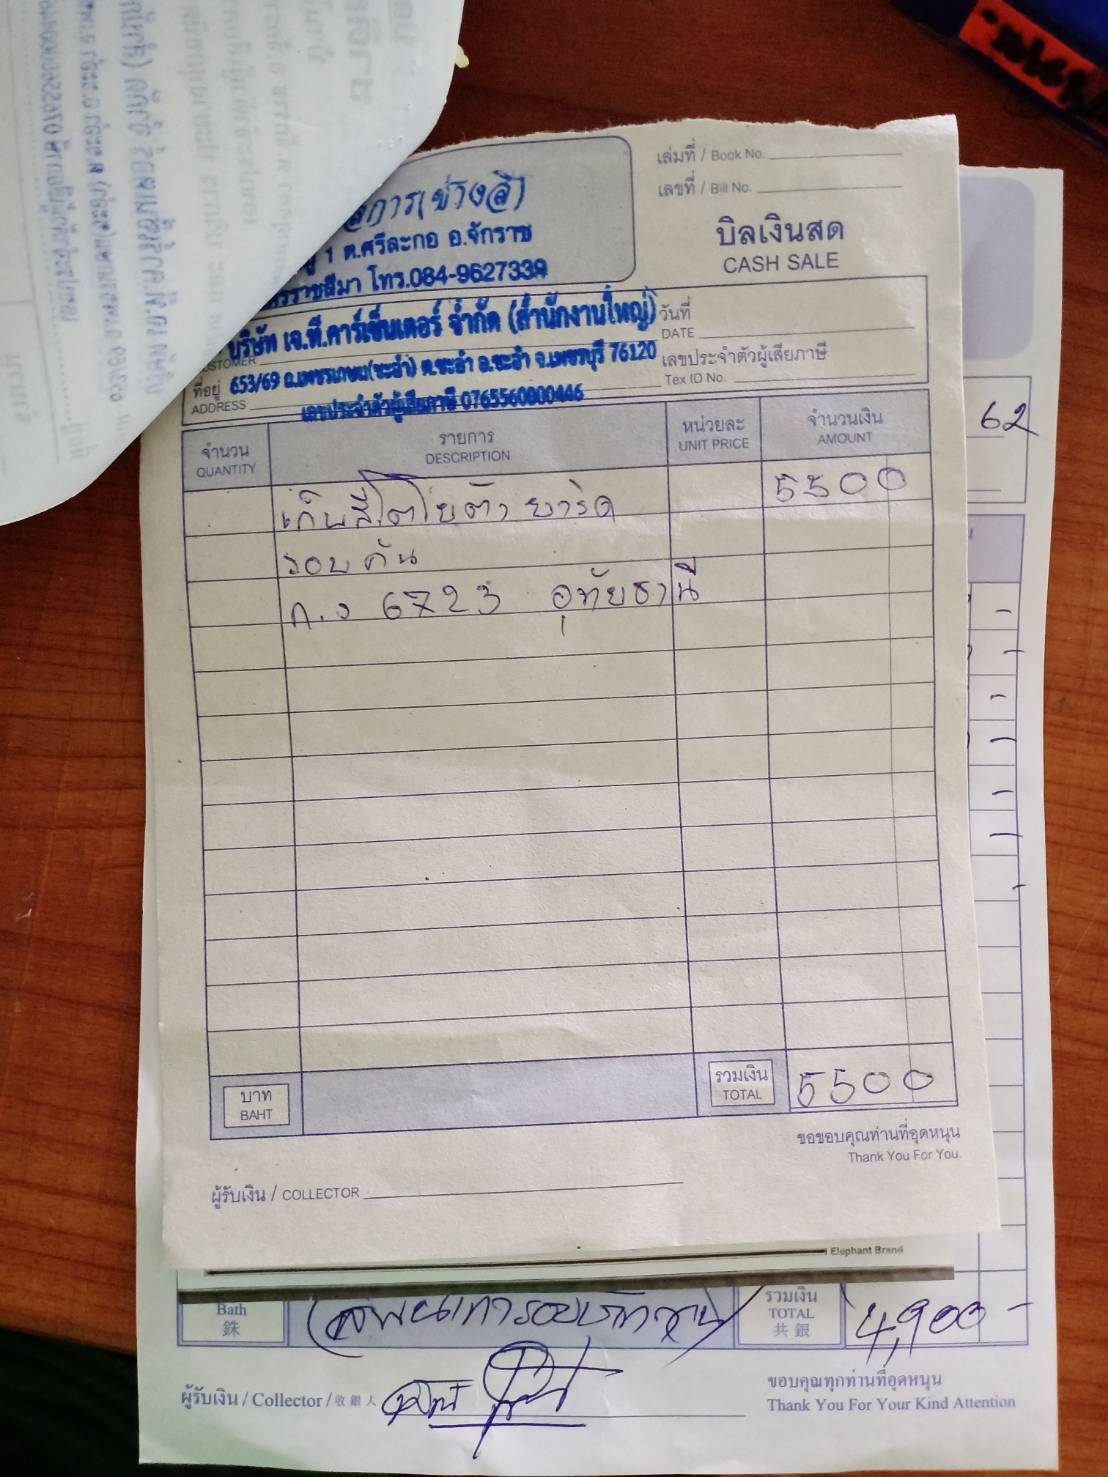 การ(ช่างลี)
1 ต.ศรีละกอ อ.จักราช
ราชสีมา โทร.084-9627339
เล่มที่ / Book No.
เลขที่ / Bill No.
บิลเงินสด
CASH SALE
บริษัท เจ.พี.คาร์เซ็นเตอร์ จำกัด (สำนักงานใหญ่)
CUSTOMER
วันที่
DATE
ที่อยู่ 653/69 ถ.เพชรเกษม(ชะอำ) ต.ชะอำ อ.ชะอำ จ.เพชรบุรี 76120
ADDRESS
เลขประจำตัวผู้เสียภาษี 0765560000446
เลขประจำตัวผู้เสียภาษี
Tex ID No.
จำนวน
QUANTITY
รายการ
DESCRIPTION
หน่วยละ
UNIT PRICE
จำนวนเงิน
AMOUNT
62
เก็บสีโตโยต้า ยาริด 5500
รอบคัน
ก.ง 6723 อุทัยธานี
บาท
BAHT
รวมเงิน
TOTAL
5500
ขอขอบคุณท่านที่อุดหนุน
Thank You For You.
ผู้รับเงิน / COLLECTOR
Elephant Brand
Bath
銖
(สี่พันเก้าร้อยบาทถ้วน)
รวมเงิน
TOTAL
共銀
4,900 -
ผู้รับเงิน / Collector / 收銀人
ขอบคุณทุกท่านที่อุดหนุน
Thank You For Your Kind Attention